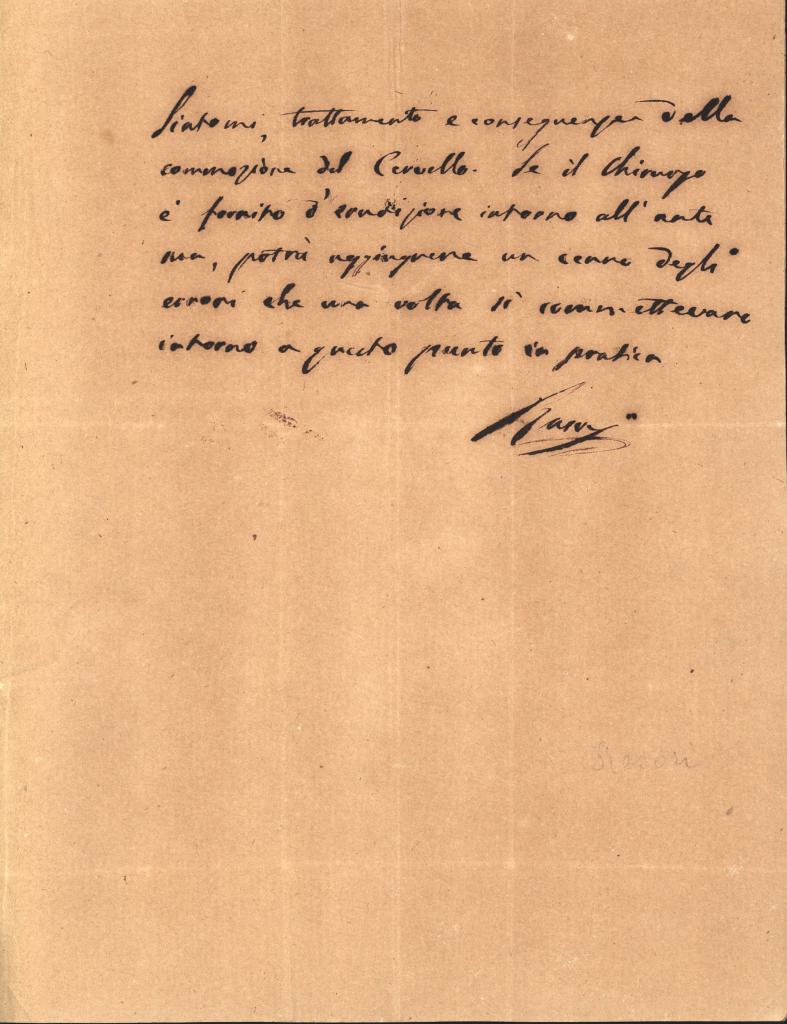 Sintomi, trattamento e conseguenza della
commozione del Cervello. Se il chirurgo
è fornito d'erudizione intorno all'ante
ma, potrà aggiugnere un cenno degli
errori che una volta si commettevano
intorno a questo punto in pratica
Rasori
Rasori